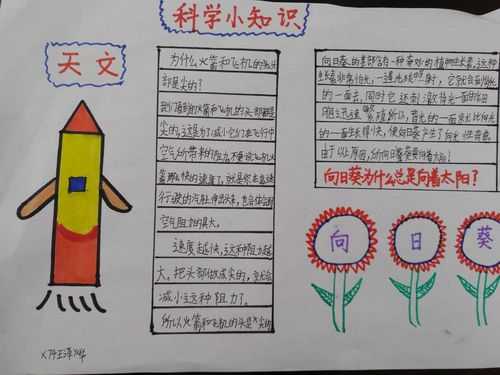 科学小知识
天文
为什么火箭和飞机的头
都是尖的?
我们看到的火箭和飞机的头部都是
尖的,这是为了减小它们在飞行中
空气所带来的阻力,不要说飞机火
箭那么快的速度了,就是你在高速
行驶的汽车伸出头来,也会体会到
空气阻力的具大。
速度越快,这种阻力越
大,把头部做成尖的,
减小这种阻力了。
所以火箭和飞机的头是尖的
向日葵的茎部含有一种奇妙的植物生长素,这种
生长素非常怕光,一遇光线照射,它就会到背光
的一面去,同时它还刺激背光一面的细
胞迅速繁殖所以,背光的一面就比向光
的一面生长得快,使向日葵产生了向光性弯曲
由于以上原因,所以向日葵总是向着太阳!
向日葵为什么总是向着太阳?
向
日
葵